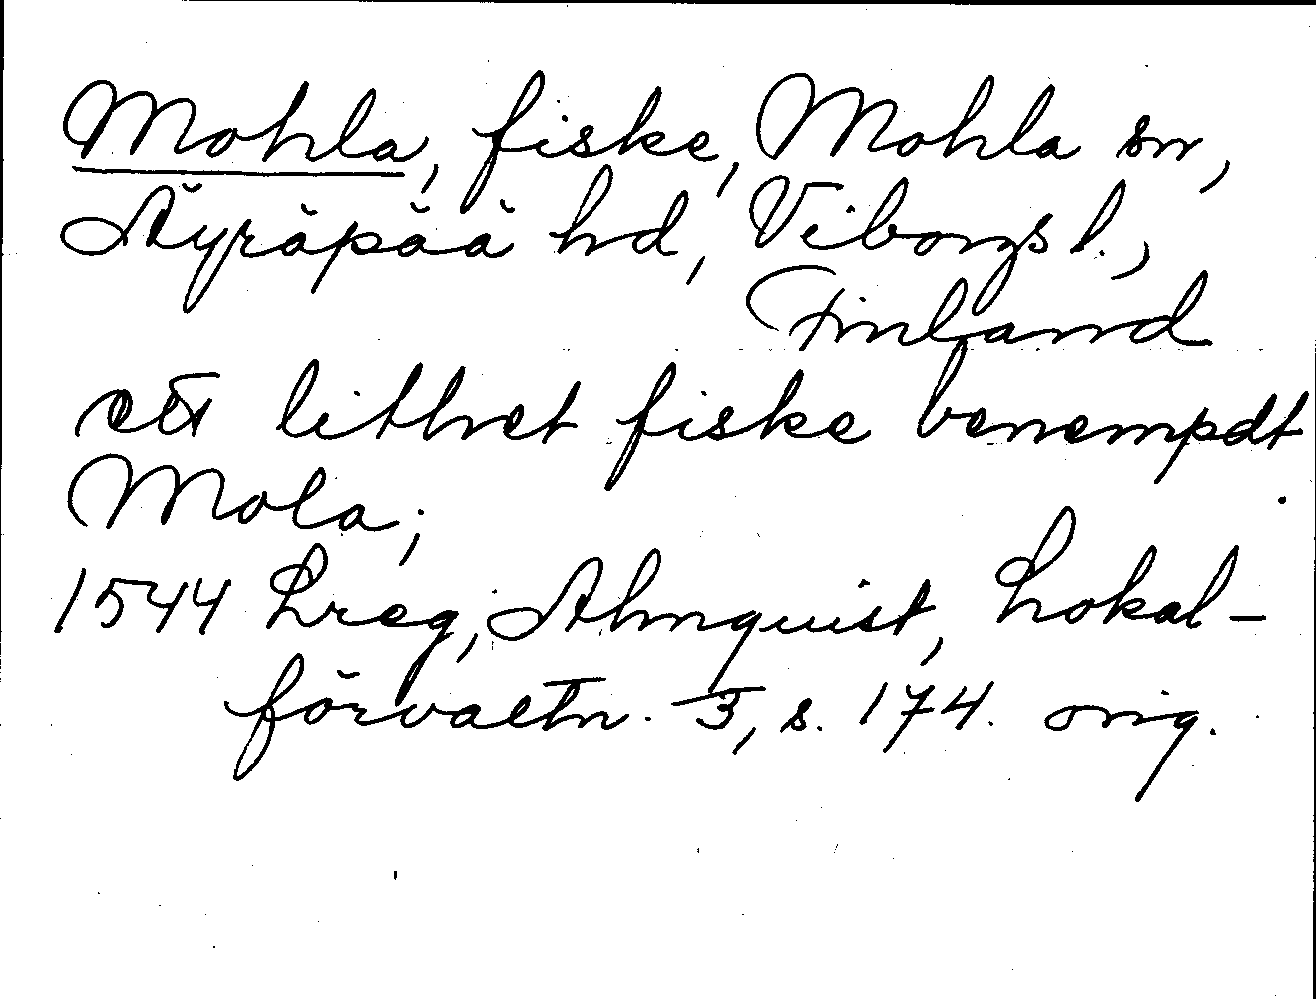 Mohla, fiske, Mohla sn,
Äyräpää hd, Viborgs l.,
Finland
ett lithet fiske benempdt
Mola;
1544 Lreg, Almquist, Lokal-
förvaltn. 3, s. 174. orig.